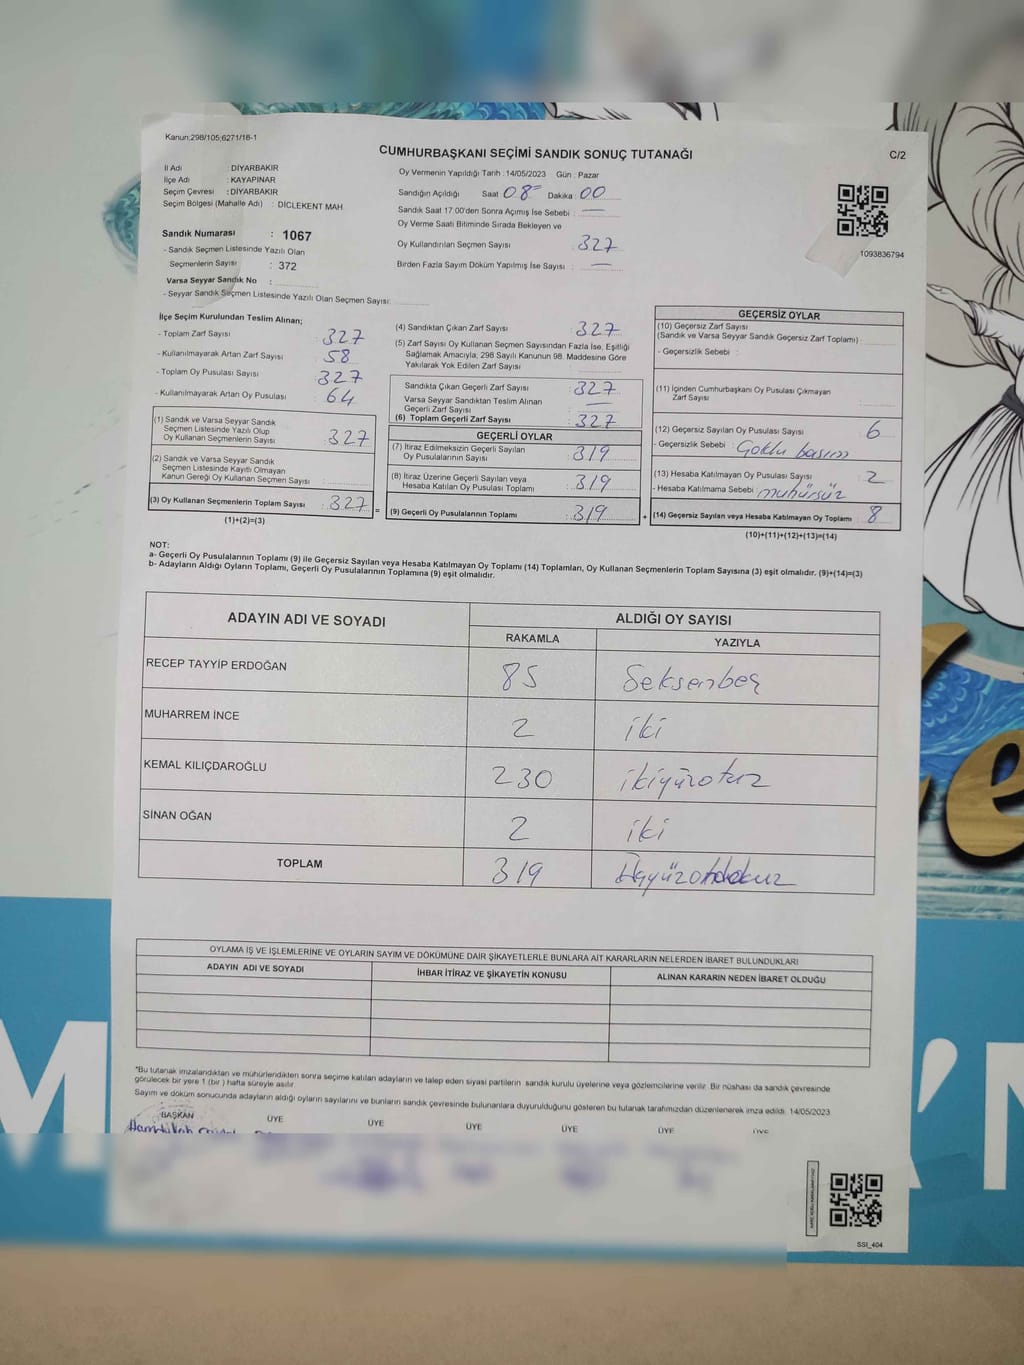 Kanun:298/105;6271/16-1
CUMHURBAŞKANI SEÇİMİ SANDIK SONUÇ TUTANAĞI
C/2
İl Adı : DİYARBAKIR
İlçe Adı : KAYAPINAR
Seçim Çevresi : DİYARBAKIR
Seçim Bölgesi (Mahalle Adı) : DİCLEKENT MAH.
Sandık Numarası : 1067
- Sandık Seçmen Listesinde Yazılı Olan
Seçmenlerin Sayısı : 372
Varsa Seyyar Sandık No :
- Seyyar Sandık Seçmen Listesinde Yazılı Olan Seçmen Sayısı:
Oy Vermenin Yapıldığı Tarih : 14/05/2023 Gün : Pazar
Sandığın Açıldığı Saat 08 Dakika : 00
Sandık Saat 17:00'den Sonra Açımış İse Sebebi : —
Oy Verme Saati Bitiminde Sırada Bekleyen ve
Oy Kullandırılan Seçmen Sayısı : 327
Birden Fazla Sayım Döküm Yapılmış İse Sayısı : —
1093836794
İlçe Seçim Kurulundan Teslim Alınan;
- Toplam Zarf Sayısı : 327
- Kullanılmayarak Artan Zarf Sayısı : 58
- Toplam Oy Pusulası Sayısı : 327
- Kullanılmayarak Artan Oy Pusulası : 64
(1) Sandık ve Varsa Seyyar Sandık
Seçmen Listesinde Yazılı Olup
Oy Kullanan Seçmenlerin Sayısı : 327
(2) Sandık ve Varsa Seyyar Sandık
Seçmen Listesinde Kayıtlı Olmayan
Kanun Gereği Oy Kullanan Seçmen Sayısı :
(3) Oy Kullanan Seçmenlerin Toplam Sayısı : 327 =
(1)+(2)=(3)
(4) Sandıktan Çıkan Zarf Sayısı : 327
(5) Zarf Sayısı Oy Kullanan Seçmen Sayısından Fazla İse, Eşitliği
Sağlamak Amacıyla; 298 Sayılı Kanunun 98. Maddesine Göre
Yakılarak Yok Edilen Zarf Sayısı :
Sandıkta Çıkan Geçerli Zarf Sayısı : 327
Varsa Seyyar Sandıktan Teslim Alınan
Geçerli Zarf Sayısı : —
(6) Toplam Geçerli Zarf Sayısı : 327
GEÇERLİ OYLAR
(7) İtiraz Edilmeksizin Geçerli Sayılan
Oy Pusulalarının Sayısı : 319
(8) İtiraz Üzerine Geçerli Sayılan veya
Hesaba Katılan Oy Pusulaları Toplamı : 319
(9) Geçerli Oy Pusulalarının Toplamı : 319 +
GEÇERSİZ OYLAR
(10) Geçersiz Zarf Sayısı
(Sandık ve Varsa Seyyar Sandık Geçersiz Zarf Toplamı) :
- Geçersizlik Sebebi :
(11) İçinden Cumhurbaşkanı Oy Pusulası Çıkmayan
Zarf Sayısı :
(12) Geçersiz Sayılan Oy Pusulası Sayısı : 6
- Geçersizlik Sebebi : Çoklu basım
(13) Hesaba Katılmayan Oy Pusulası Sayısı : 2
- Hesaba Katılmama Sebebi : mühürsüz
(14) Geçersiz Sayılan veya Hesaba Katılmayan Oy Toplamı : 8
(10)+(11)+(12)+(13)=(14)
NOT:
a- Geçerli Oy Pusulalarının Toplamı (9) ile Geçersiz Sayılan veya Hesaba Katılmayan Oy Toplamı (14) Toplamları, Oy Kullanan Seçmenlerin Toplam Sayısına (3) eşit olmalıdır. (9)+(14)=(3)
b- Adayların Aldığı Oyların Toplamı, Geçerli Oy Pusulalarının Toplamına (9) eşit olmalıdır.
ADAYIN ADI VE SOYADI ALDIĞI OY SAYISI
RAKAMLA YAZIYLA
RECEP TAYYİP ERDOĞAN 85 Seksenbeş
MUHARREM İNCE 2 iki
KEMAL KILIÇDAROĞLU 230 ikiyüzotuz
SİNAN OĞAN 2 iki
TOPLAM 319 Üçyüzondokuz
OYLAMA İŞ VE İŞLEMLERİNE VE OYLARIN SAYIM VE DÖKÜMÜNE DAİR ŞİKAYETLERLE BUNLARA AİT KARARLARIN NELERDEN İBARET BULUNDUKLARI
ADAYIN ADI VE SOYADI İHBAR İTİRAZ VE ŞİKAYETİN KONUSU ALINAN KARARIN NEDEN İBARET OLDUĞU
*Bu tutanak imzalandıktan ve mühürlendikten sonra seçime katılan adayların ve talep eden siyasi partilerin sandık kurulu üyelerine veya gözlemcilerine verilir. Bir nüshası da sandık çevresinde
görülecek bir yere 1 (bir ) hafta süreyle asılır.
Sayım ve döküm sonucunda adayların aldığı oyların sayılarını ve bunların sandık çevresinde bulunanlara duyurulduğunu gösteren bu tutanak tarafımızdan düzenlenerek imza edildi. 14/05/2023
BAŞKAN ÜYE ÜYE ÜYE ÜYE ÜYE ÜYE
SSI_404